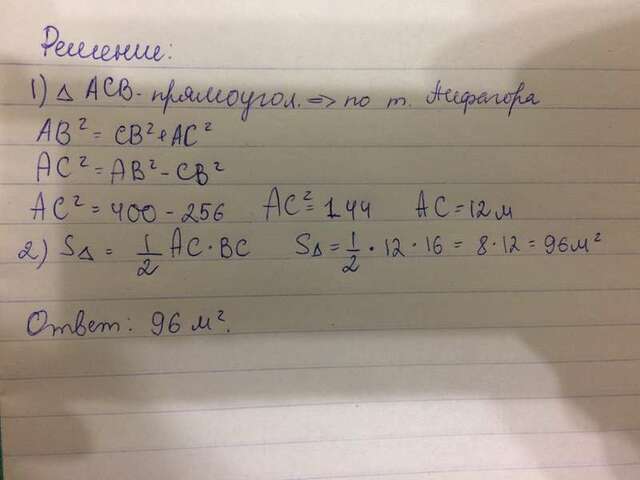 Решение:
1) Δ ACB - прямоугол. => по т. Пифагора
AB² = CB² + AC²
AC² = AB² - CB²
AC² = 400 - 256 AC² = 144 AC = 12 м
2) S△ = 1/2 AC · BC S△ = 1/2 · 12 · 16 = 8 · 12 = 96 м²
Ответ: 96 м².